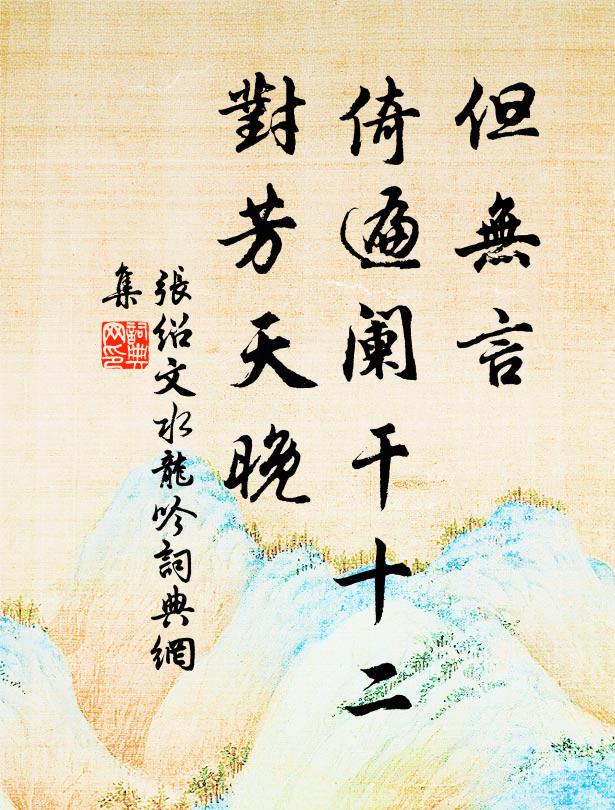 但無言
倚遍阑干十二
對芳天晚
張绍文水龍吟詞典網
集
詞典
网印